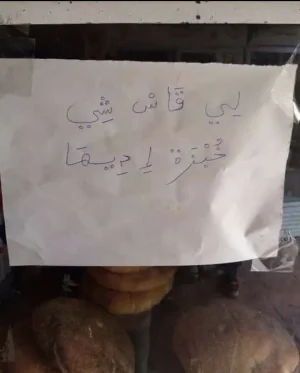 لي قَاسْ شِي
خُبْزَة إدِيهَا